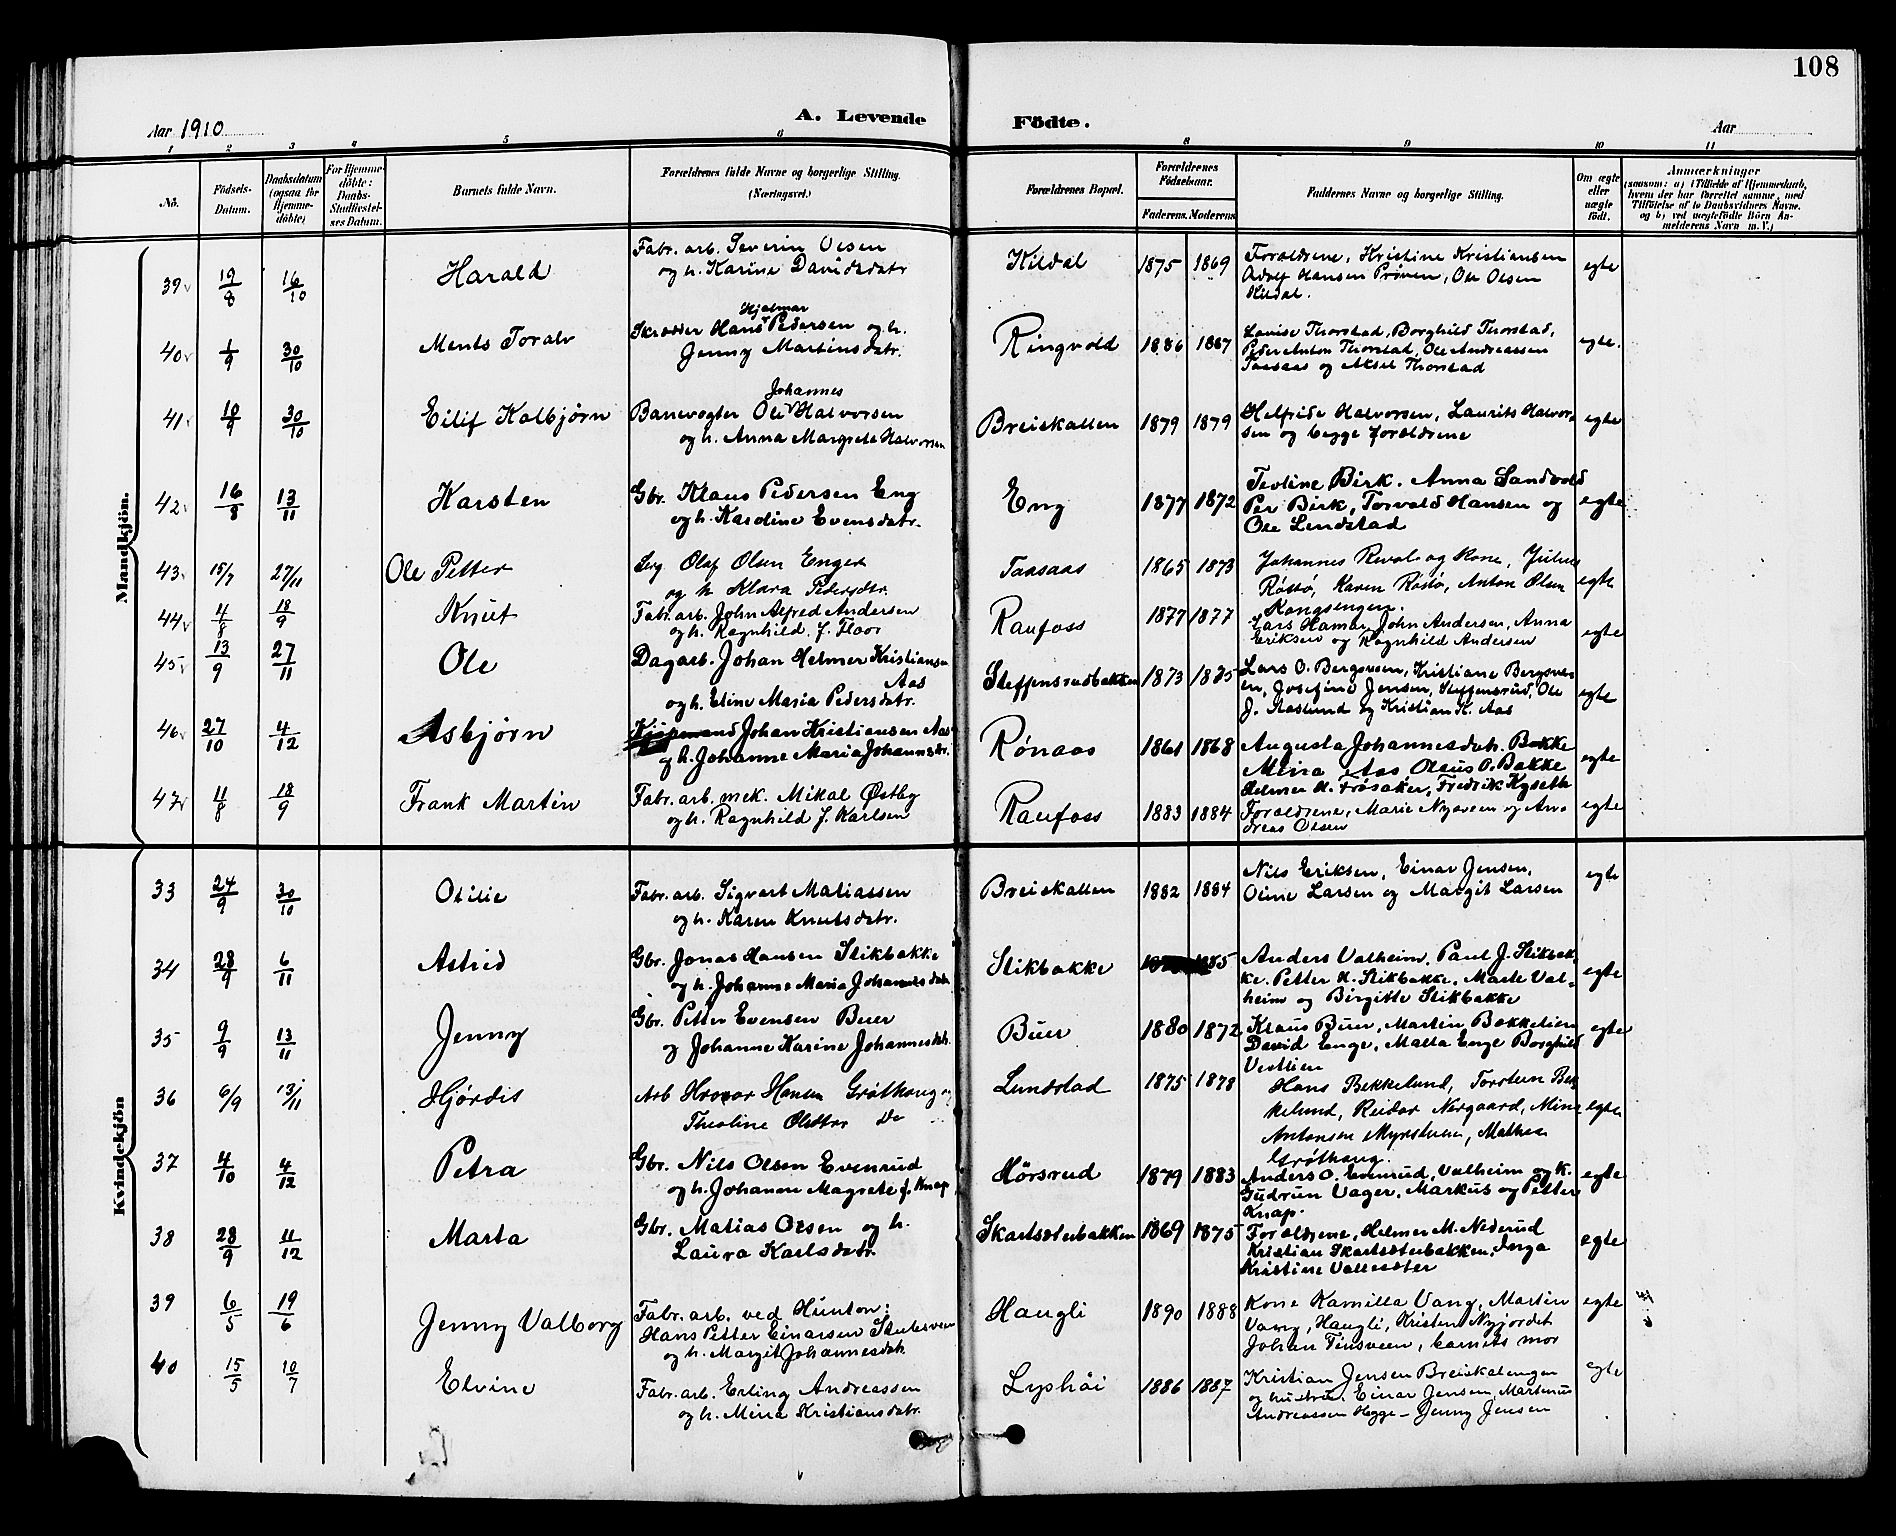 108
Aar 1910
A. Levende
Födte.
Aar
1 2 3 4 5 6 8 9 10 11
No.
Födsels-Datum.
Daabsdatum (ogsaa for Hjemme-döbte)
For Hjemme-döbte: Daabs-Stadfæstel-ses Datum.
Barnets fulde Navn.
Forældrenes fulde Navne og borgerlige Stilling. (Næringsvei.)
Forældrenes Bopæl.
Forældrenes Födselsaar.
Faderens. Moderens.
Faddernes Navne og borgerlige Stilling.
Om ægte eller uægte födt.
Anmærkninger
(saasom: a) i Tilfælde af Hjemmedaab, hvem der har forrettet samme, med Tilföielse af to Daabsvidners Navne. og b) ved uægtefödte Börn An-melderens Navn m. V.)
Mandkjön.
39 19/8 16/10 Harald
Fabr. arb. Severin Olsen
og h. Karine Davidsdatr
Kildal 1875 1869
Forældrene, Kristine Kristiansen
Adolf Hansen Prøven, Ole Olsen
Kildal.
egte
40 1/9 30/10 Ments Toralv
Hjalmar
Skrædder Hans Pedersen og h.
Jenny Martinsdatr.
Ringvold 1886 1887
Lovise Thorstad, Borghild Thorstad,
Peder Anton Thorstad, Ole Andreassen
Taasaas og Aksel Thorstad
egte.
41 10/9 30/10 Eilif Kolbjørn
Johannes
Banevogter Ole Halvorsen
og h. Anna Margrete Halvorsen
Breiskallen 1879 1879
Helfride Halvorsen, Laurits Halvor-
sen og begge forældrene
egte
42 16/8 13/11 Karsten
Gbr. Klaus Pedersen Eng
og h. Karoline Evensdatr.
Eng 1877 1872
Teoline Birk. Anna Sandvold
Per Birk, Torvald Hansen og
Ole Lundstad
egte
43 15/7 27/11 Ole Petter
Olaf Olsen Enger
og h Klara Pedersdtr.
Taasaas 1865 1873
Johannes Reval og Kone, Julius
Røstø, Karen Røstø, Anton Olsen
Kongsengen.
egte
44 4/8 18/9 Knut
Fabr. arb. John Alfred Andersen
og h. Ragnhild f. Floor
Raufoss 1877 1877
Lars Hamar, John Andersen, Anna
Eriksen og Ragnhild Andersen
egte
45 13/9 27/11 Ole
Dagarb. Johan Helmer Kristiansen
Aas
og h. Eline Maria Pedersdatr.
Steffensrudbakken 1873 1875
Lars O. Bergsveen, Kristiane Bergsve-
en, Josefine Jensen, Steffensrud, Ole
J. Aaslund og Kristian K. Aas
egte
46 27/10 4/12 Asbjørn
Kjøpmand Johan Kristiansen Aas
og h. Johanne Maria Johannsdtr.
Rønaas 1861 1868
Augusta Johannesdatr. Bakke
Mina Aas Olaus O. Bakke
Helmer H. Frøsaker, Fredrik Kyseth
egte
47 11/8 18/9 Frank Martin
Fabr. arb. mek. Mikal Østby
og h. Ragnhild f. Karlsen
Raufoss 1883 1884
Forældrene, Marie Nysveen og An-
dreas Olsen
egte
Kvindekjön
33 24/9 30/10 Otilie
Fabr. arb. Sigvart Matiassen
og h. Karen Knutsdatr.
Breiskallen 1882 1884
Nils Eriksen, Einar Jensen,
Oline Larsen og Margit Larsen
egte
34 28/9 6/11 Astrid
Gbr. Jonas Hansen Stikbakke
og h. Johanne Maria Johannesdatr.
Stikbakke 1885
Anders Valheim, Paul J. Stikbak-
ke. Petter H. Stikbakke, Marte Val-
heim og Birgitte Stikbakke
egte
35 9/9 13/11 Jenny
Gbr. Petter Evensen Buer
og Johanne Karine Johannesdatr.
Buer 1880 1872
Klaus Buer, Martin Bakkelien
David Enge, Matta Enge Borghild
Vestlien
egte
36 6/9 13/11 Hjørdis
Arb Hroar Hansen Grøthaug og
Theoline Olsdtr Do
Lundstad 1875 1878
Hans Bekkelund, Torstein Bek-
kelund, Reidar Nørgaard, Mina
Antonsen Myrstuen, Mathea
Grøthaug.
egte
37 4/10 4/12 Petra
Gbr. Nils Olsen Evenrud
og h. Johanne Magrete f. Knap
Hørsrud 1879 1883
Anders O. Evenrud, Valheim og k.
Gudrun Vager, Markus og Petter
Knap.
egte
38 28/9 11/12 Marta
Gbr. Matias Olsen og h.
Laura Karlsdatr.
Skartsæterbakken 1869 1875
Forældrene, Helmer M. Nederud
Kristian Skartsæterbakken, Inga
Kristine Vallesæter
egte
39 6/5 19/6 Jenny Valborg
Fabr. arb. ved Hunton:
Hans Petter Einarsen
og h. Margit Johannesdatr.
Haugli 1890 1888
Kone Kamilla Vang, Martin
Vang, Haugli, Kristen Nyjordet
Johan Finsveen, barnets mor
egte
40 15/5 10/7 Elvine
Fabr. arb. Erling Andreassen
og h. Mina Kristiansdatr.
Lyshøi 1886 1887
Kristian Jensen Breiskalengen
og hustru, Einar Jensen, Martinus
Andreassen Hegge - Jenny Jensen
egte